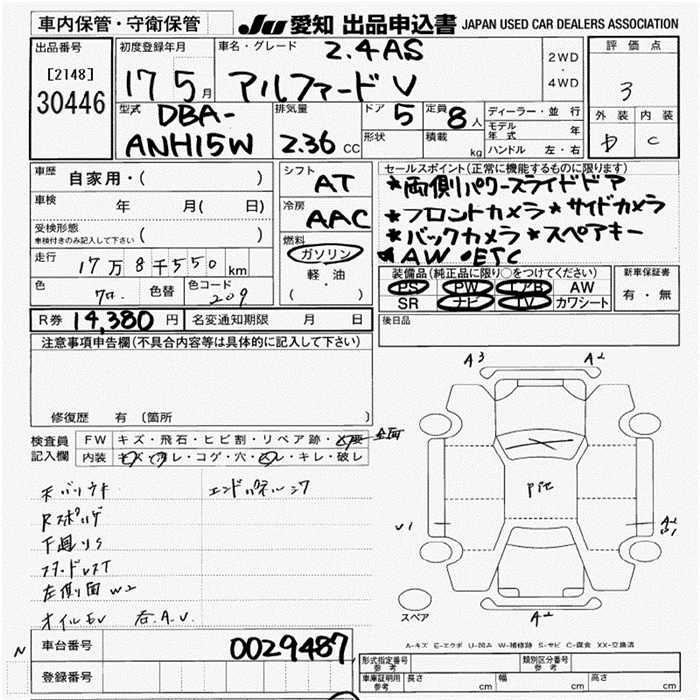 車内保管・守衛保管
JU 愛知 出品申込書 JAPAN USED CAR DEALERS ASSOCIATION
出品番号
[2148]
30446
初度登録年月
17 5月
車名・グレード
2.4AS
アルファード V
2WD
・
4WD
評価点
3
外装 内装
C
型式
DBA-
ANH15W
排気量
2.36 CC
ドア 5
形状
定員 8人
積載 kg
ディーラー・並行
モデル年式 年
ハンドル 左・右
車歴 自家用・( )
車検 年 月( 日)
受検形態
車検付きのみ記入して下さい ( )
走行 17万8千550km
色 クロ. 色替 色コード 209
シフト
AT
冷房
AAC
燃料
ガソリン
軽・油
( ・ )
セールスポイント(正常に機能するものに限ります)
*両側パワースライドドア
*フロントカメラ*サイドカメラ
*バックカメラ*スペアキー
*AW ・ETC
装備品(純正品に限り○をつけてください)
PS PW エアB AW
SR ナビ TV カワシート
新車保証書
有・無
R券 14,380円 名変通知期限 月 日
後日品
注意事項申告欄(不具合内容等は具体的に記入して下さい)
修復歴 有 〔箇所 〕
検査員
記入欄
FW キズ・飛石・ヒビ割・リペア跡・×要
内装 キズ・汚レ・コゲ・穴・スレ・キレ・破レ
全面
Rスポイ
下廻りS
左側面 W2
オイルモレ 右A.V.
エンドパネル
A3 A2
Pit
U1
A2
U1
A2
スペア
A-キズ E-エクボ U-凹み W-補修跡 S-サビ C-腐食 XX-交換済
N
車台番号 0029487
登録番号
形式指定番号
参考
類別区分番号
参考
車庫証明用
参考
長さ cm 幅 cm 高さ cm